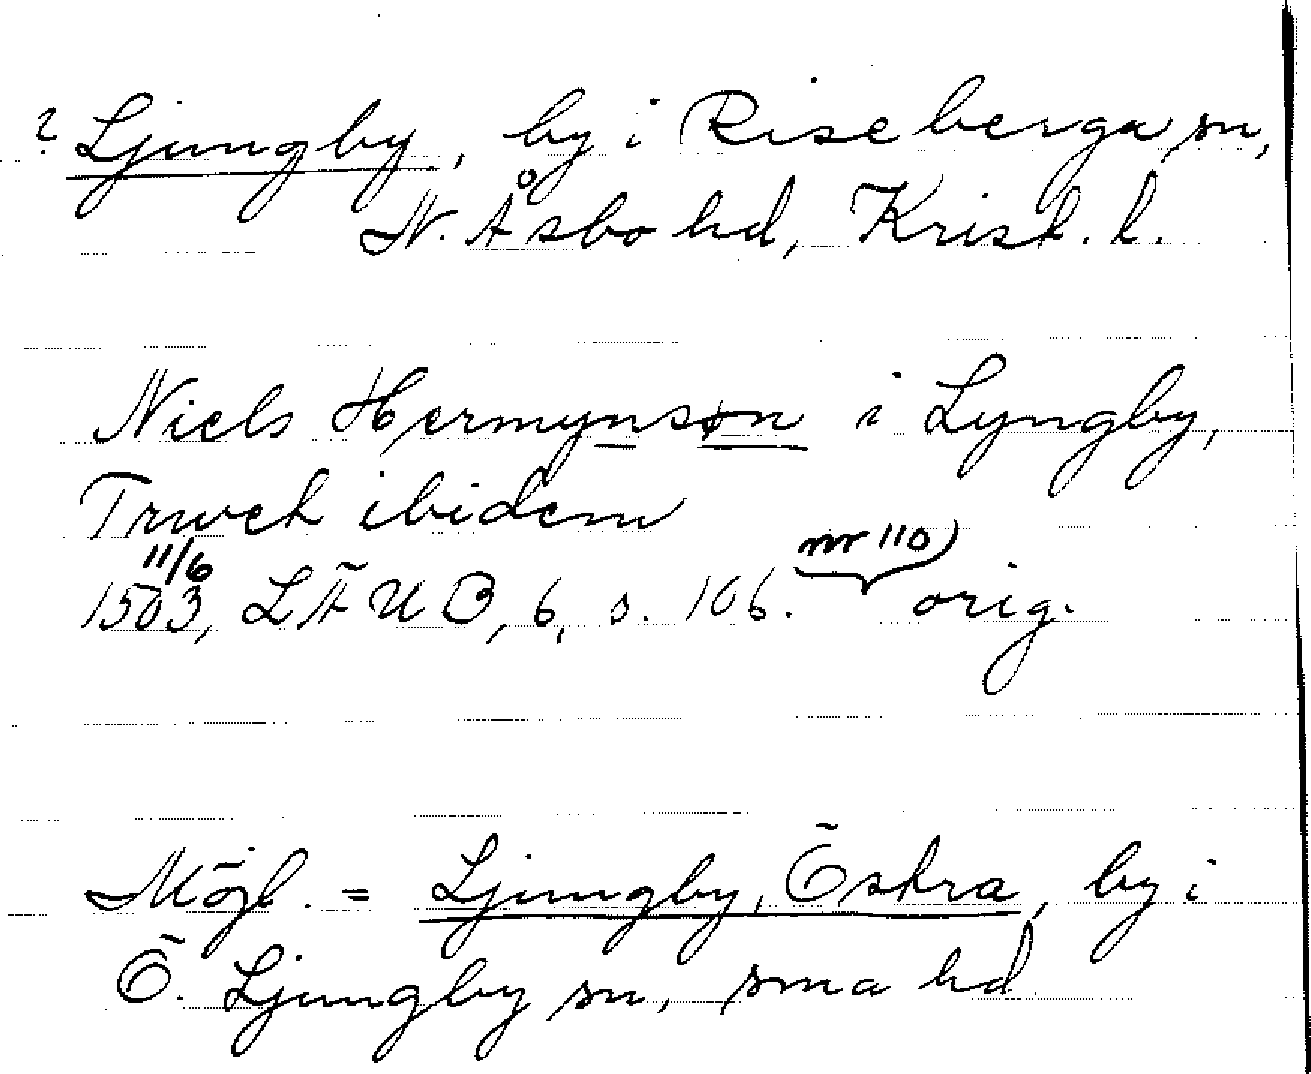 ? Ljungby, by i Riseberga sn,
N. Åsbo hd, Krist. l.
Niels Hermynsøn i Lyngby,
Trwels ibidem
11/6 nr 110)
1503, LÄUB, 6, s. 106. orig.
Möjl. = Ljungby, Östra, by i
Ö. Ljungby sn, sma hd